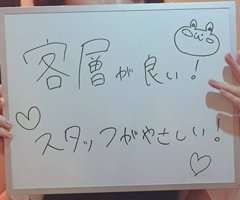 客層が良い!
スタッフがやさしい!